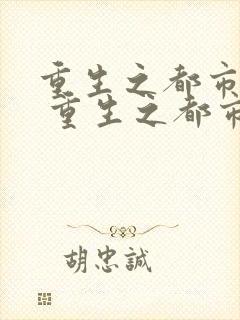 重生之都市
重生之都市
胡忠誠